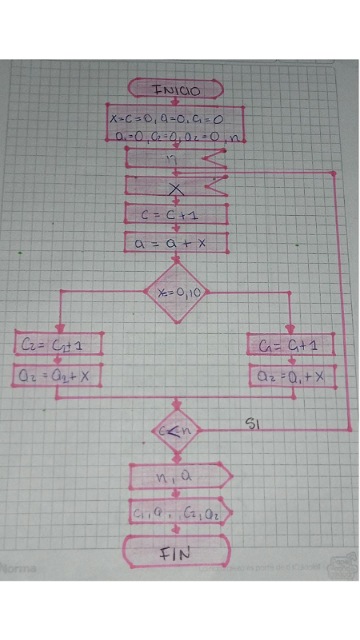 INICIO
X=C=0, a=0, C1=0
a1=0, C2=0, a2=0, n
n
X
C = C+1
a = a + X
X=0,10
C2= C2+1
C1= C1+1
a2= a2+X
a2= a1+X
C<n
SI
n, a
C1, a, C2, a2
FIN
Norma